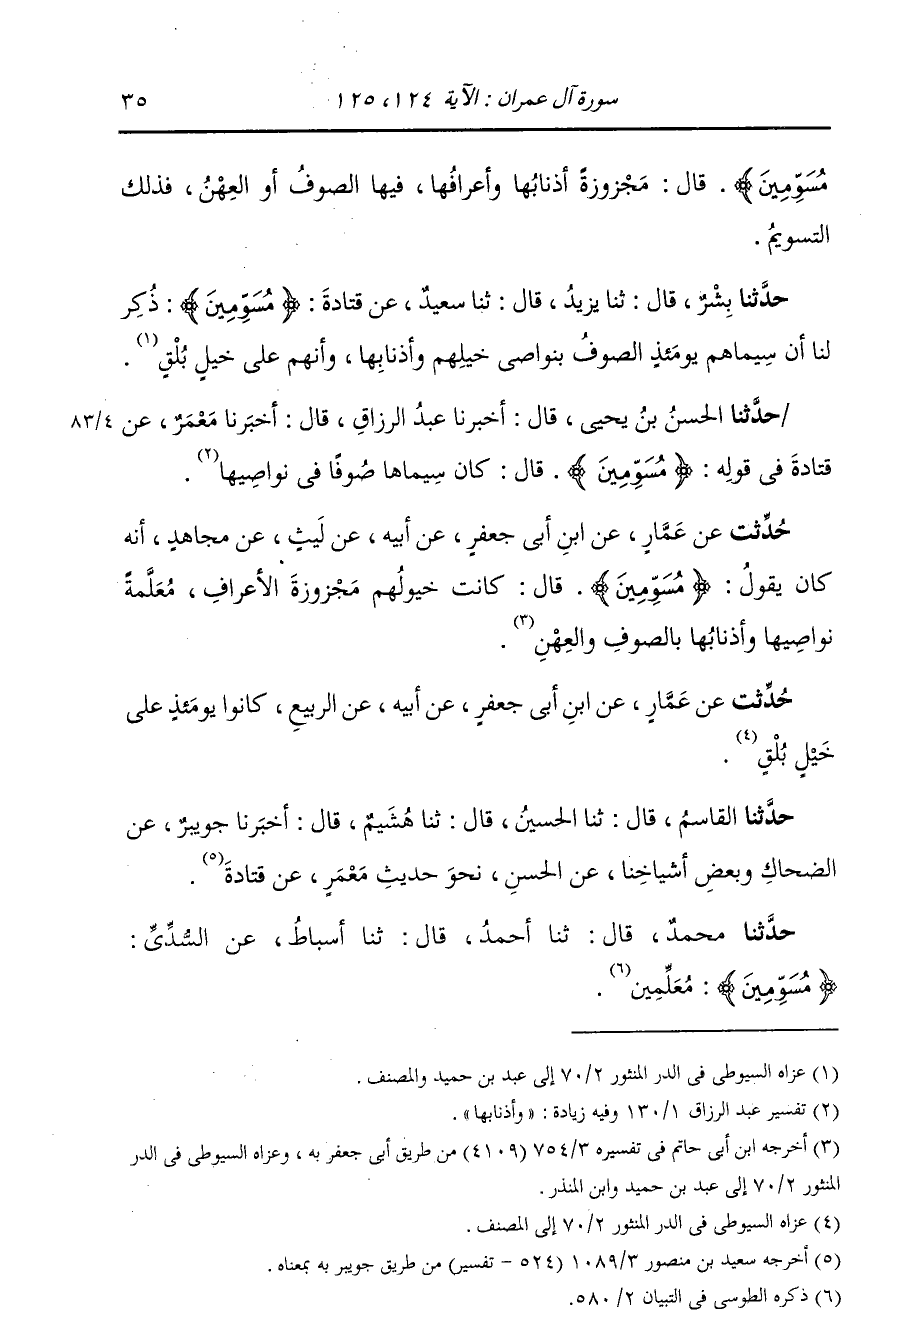 سورة آل عمران : الآية ١٢٤، ١٢٥ ٣٥
مُسَوِّمِينَ﴾ . قال : مَجْزوزةً أذنابُها وأعرافُها ، فيها الصوفُ أو العِهْنُ ، فذلك
التسويمُ .
حدَّثنا بِشْرٌ ، قال : ثنا يزيدُ ، قال : ثنا سعيدٌ ، عن قتادةَ : ﴿ مُسَوِّمِينَ ﴾ : ذُكِر
لنا أن سِيماهم يومَئذٍ الصوفُ بنواصى خيلِهم وأذنابِها ، وأنهم على خيلٍ بُلْقٍ(١) .
/حدَّثنا الحسنُ بنُ يحيى ، قال : أخبرنا عبدُ الرزاقِ ، قال : أخبَرنا مَعْمَرٌ ، عن ٨٣/٤
قتادةَ فى قولِه : ﴿ مُسَوِّمِينَ ﴾ . قال : كان سِيماها صُوفًا فى نواصِيها(٢) .
حُدِّثت عن عَمَّارٍ ، عن ابنِ أبى جعفرٍ ، عن أبيه ، عن لَيثٍ ، عن مجاهدٍ ، أنه
كان يقولُ : ﴿ مُسَوِّمِينَ﴾ . قال : كانت خيولُهم مَجْزوزةَ الأعرافِ ، مُعَلَّمةً
نواصِيها وأذنابُها بالصوفِ والعِهْنِ(٣) .
حُدِّثت عن عَمَّارٍ ، عن ابنِ أبى جعفرٍ ، عن أبيه ، عن الربيعِ ، كانوا يومَئذٍ على
خَيْلٍ بُلْقٍ(٤) .
حدَّثنا القاسمُ ، قال : ثنا الحسينُ ، قال : ثنا هُشَيمٌ ، قال : أخبَرنا جويبرٌ ، عن
الضحاكِ وبعضِ أشياخِنا ، عن الحسنِ ، نحوَ حديثِ مَعْمَرٍ ، عن قتادةَ(٥) .
حدَّثنا محمدٌ ، قال : ثنا أحمدُ ، قال : ثنا أسباطُ ، عن السُّدِّىِّ :
﴿ مُسَوِّمِينَ ﴾ : مُعَلِّمِين(٦) .
(١) عزاه السيوطى فى الدر المنثور ٧٠/٢ إلى عبد بن حميد والمصنف .
(٢) تفسير عبد الرزاق ١٣٠/١ وفيه زيادة : «وأذنابها» .
(٣) أخرجه ابن أبى حاتم فى تفسيره ٧٥٤/٣ (٤١٠٩) من طريق أبى جعفر به ، وعزاه السيوطى فى الدر
المنثور ٧٠/٢ إلى عبد بن حميد وابن المنذر .
(٤) عزاه السيوطى فى الدر المنثور ٧٠/٢ إلى المصنف .
(٥) أخرجه سعيد بن منصور ١٠٨٩/٣ (٥٢٤ - تفسير) من طريق جويبر به بمعناه .
(٦) ذكره الطوسى فى التبيان ٥٨٠/٢.